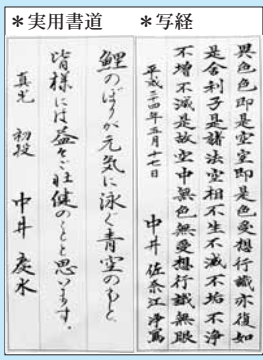 *実用書道
*写経
鯉のぼりが元気に泳ぐ青空のもと
皆様には益々ご壮健のことと思います。
真光 初段 中井 慶水
異色色即是空空即是色受想行識亦復如
是舎利子是諸法空相不生不滅不垢不浄
不増不減是故空中無色無受想行識無眼
平成二十四年五月十七日
中井佐奈江浄寫